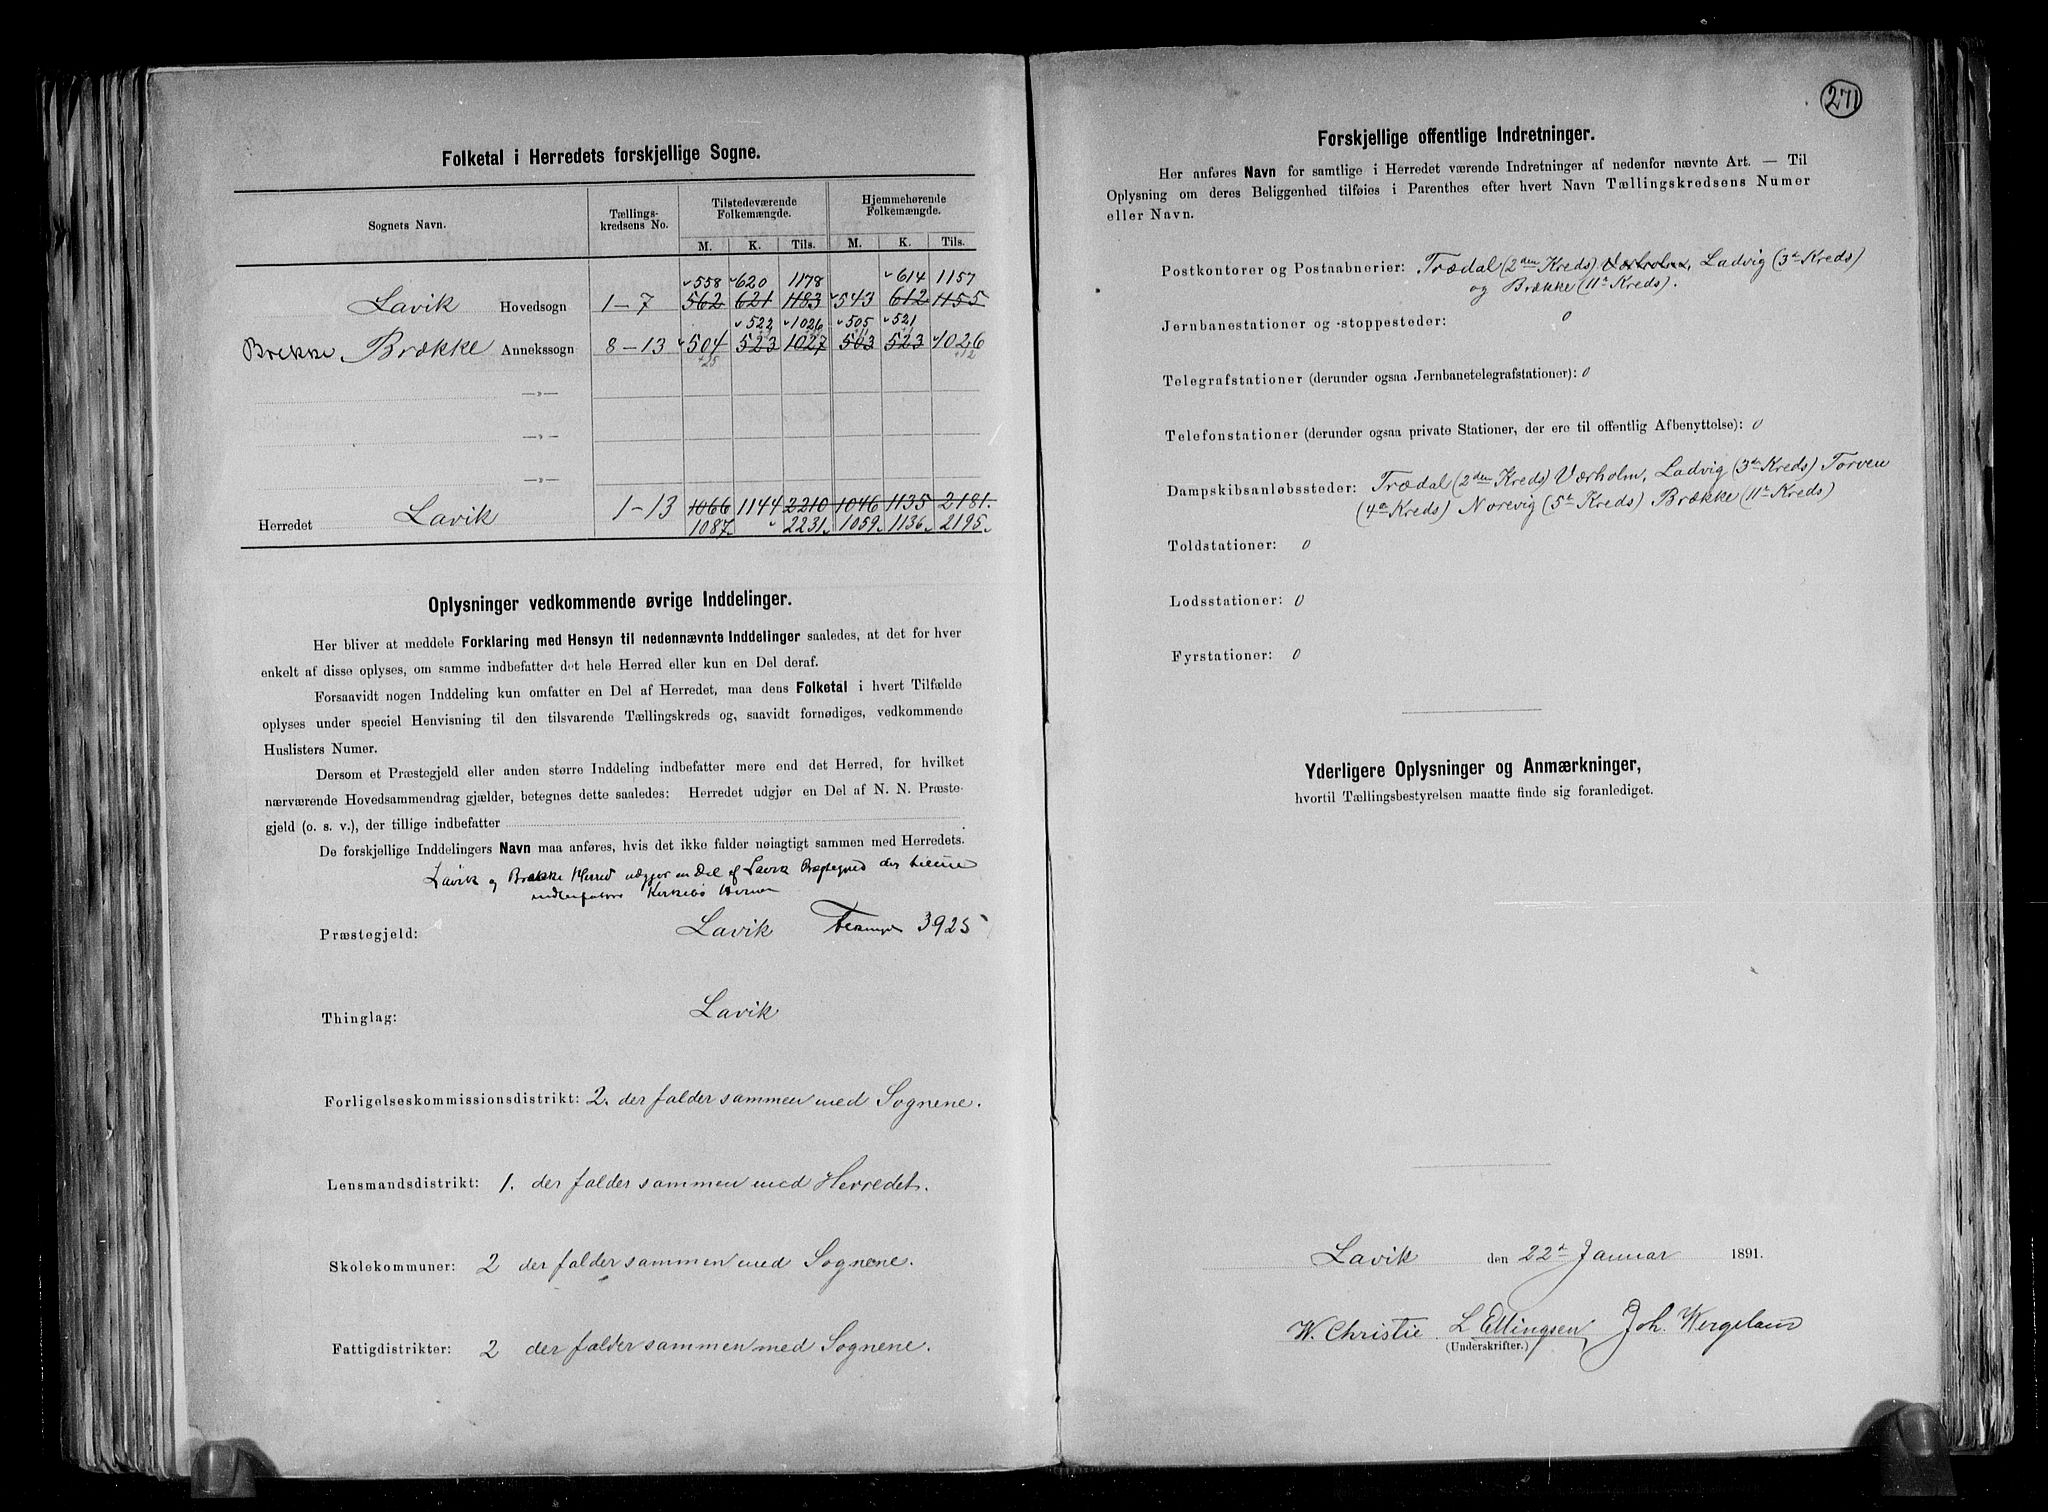 Folketal i Herredets forskjellige Sogne.
Sognets Navn. Tællings-kredsens No. Tilstedeværende Folkemængde. Hjemmehørende Folkemængde.
M. K. Tils. M. K. Tils.
558 620 1178 614 1157
Lavik Hovedsogn 1-7 562 621 1183 543 612 1155
522 1026 505 521
Brekke Brække Annekssogn 8-13 504 523 1027 503 523 1026
+25 +12
—»—
—»—
—»—
Herredet Lavik 1-13 1066 1144 2210 1046 1135 2181.
1087 2231 1059 1136 2195
Oplysninger vedkommende øvrige Inddelinger.
Her bliver at meddele Forklaring med Hensyn til nedennævnte Inddelinger saaledes, at det for hver
enkelt af disse oplyses, om samme indbefatter det hele Herred eller kun en Del deraf.
Forsaavidt nogen Inddeling kun omfatter en Del af Herredet, maa dens Folketal i hvert Tilfælde
oplyses under speciel Henvisning til den tilsvarende Tællingskreds og, saavidt fornødiges, vedkommende
Huslisters Numer.
Dersom et Præstegjeld eller anden større Inddeling indbefatter mere end det Herred, for hvilket
nærværende Hovedsammendrag gjælder, betegnes dette saaledes: Herredet udgjør en Del af N. N. Præste-
gjeld (o. s. v.), der tillige indbefatter
De forskjellige Inddelingers Navn maa anføres, hvis det ikke falder nøiagtigt sammen med Herredets.
Lavik og Brekke Herred udgjør en Del af Lavik Prgjeld der tillige
indbefatter Kirkebø Herred
Præstegjeld: Lavik 3925
Thinglag: Lavik
Forligelseskommissionsdistrikt: 2. der falder sammen med Sognene.
Lensmandsdistrikt: 1. der falder sammen med Herredet.
Skolekommuner: 2 der falder sammen med Sognene.
Fattigdistrikter: 2 der falder sammen med Sognene.
271
Forskjellige offentlige Indretninger.
Her anføres Navn for samtlige i Herredet værende Indretninger af nedenfor nævnte Art. — Til
Oplysning om deres Beliggenhed tilføies i Parenthes efter hvert Navn Tællingskredsens Numer
eller Navn.
Postkontorer og Postaabnerier: Trædal (2den Kreds) Værholm, Ladvig (3de Kreds)
og Brække (11te Kreds).
Jernbanestationer og -stoppesteder: 0
Telegrafstationer (derunder ogsaa Jernbanetelegrafstationer): 0
Telefonstationer (derunder ogsaa private Stationer, der ere til offentlig Afbenyttelse): 0
Dampskibsanløbssteder: Trædal (2den Kreds) Værholm, Ladvig (3de Kreds) Torven
(4de Kreds) Norevig (5te Kreds) Brække (11te Kreds)
Toldstationer: 0
Lodsstationer: 0
Fyrstationer: 0
Yderligere Oplysninger og Anmærkninger,
hvortil Tællingsbestyrelsen maatte finde sig foranlediget.
Lavik den 22de Januar 1891.
W. Christie L Ellingsen Joh. Wergeland
(Underskrifter.)